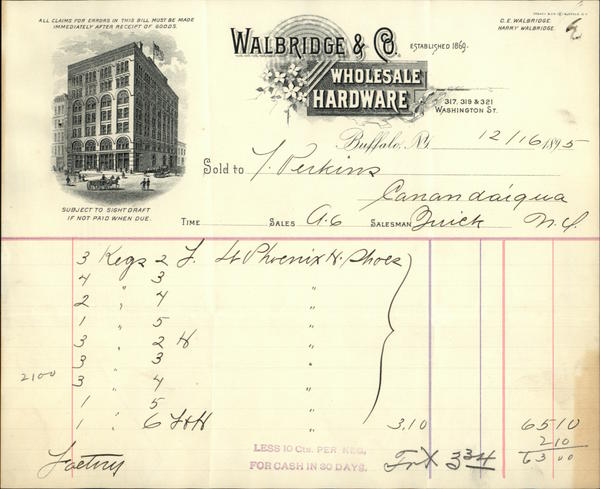 ALL CLAIMS FOR ERRORS IN THIS BILL MUST BE MADE
IMMEDIATELY AFTER RECEIPT OF GOODS.
C.E. WALBRIDGE.
HARRY WALBRIDGE.
WALBRIDGE & CO. ESTABLISHED 1869.
WHOLESALE
HARDWARE
317, 319 & 321
WASHINGTON ST.
Buffalo, N.Y. 12/16 1895
Sold to Perkins
Canandaigua
SUBJECT TO SIGHT DRAFT
IF NOT PAID WHEN DUE.
TIME SALES A.G SALESMAN Quick N.Y.
3 Kegs 2 F. Lt Phoenix H. Shoes
4 " 3 "
2 " 4 "
1 " 5 "
3 " 2 H "
3 " 3 "
2100 3 " 4 "
1 " 5 "
1 " 6 F & H " 3.10 65 10
2 10
LESS 10 Cts. PER KEG, 63 00
FOR CASH IN 30 DAYS.
Factory Frt 334